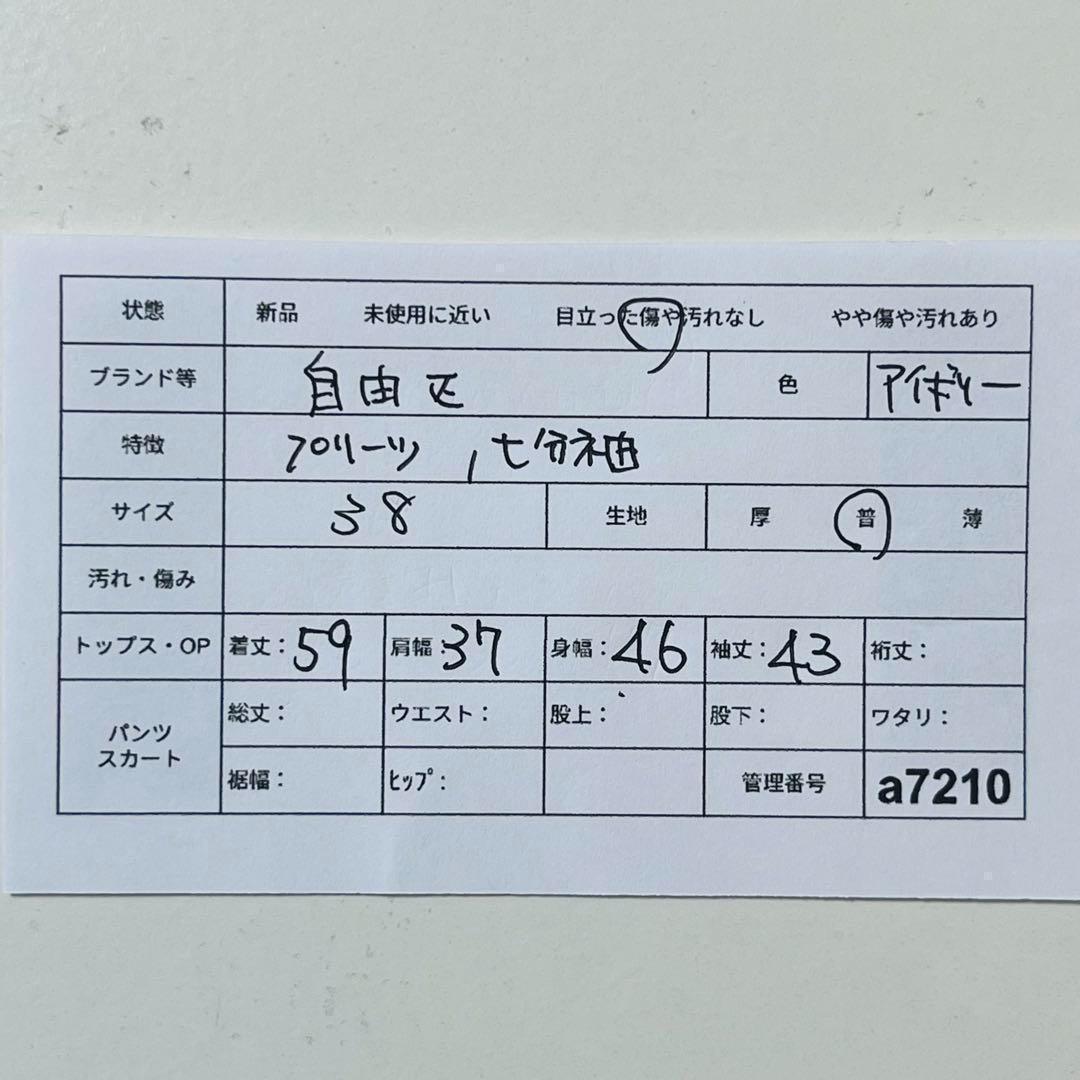 状態 新品 未使用に近い 目立った傷や汚れなし やや傷や汚れあり
ブランド等 自由区 色 アイボリー
特徴 プリーツ , 七分袖
サイズ 38 生地 厚 普 薄
汚れ・傷み
トップス・OP 着丈：59 肩幅：37 身幅：46 袖丈：43 裄丈：
パンツ スカート 総丈： ウエスト： 股上： 股下： ワタリ：
裾幅： ﾋｯﾌﾟ： 管理番号 a7210